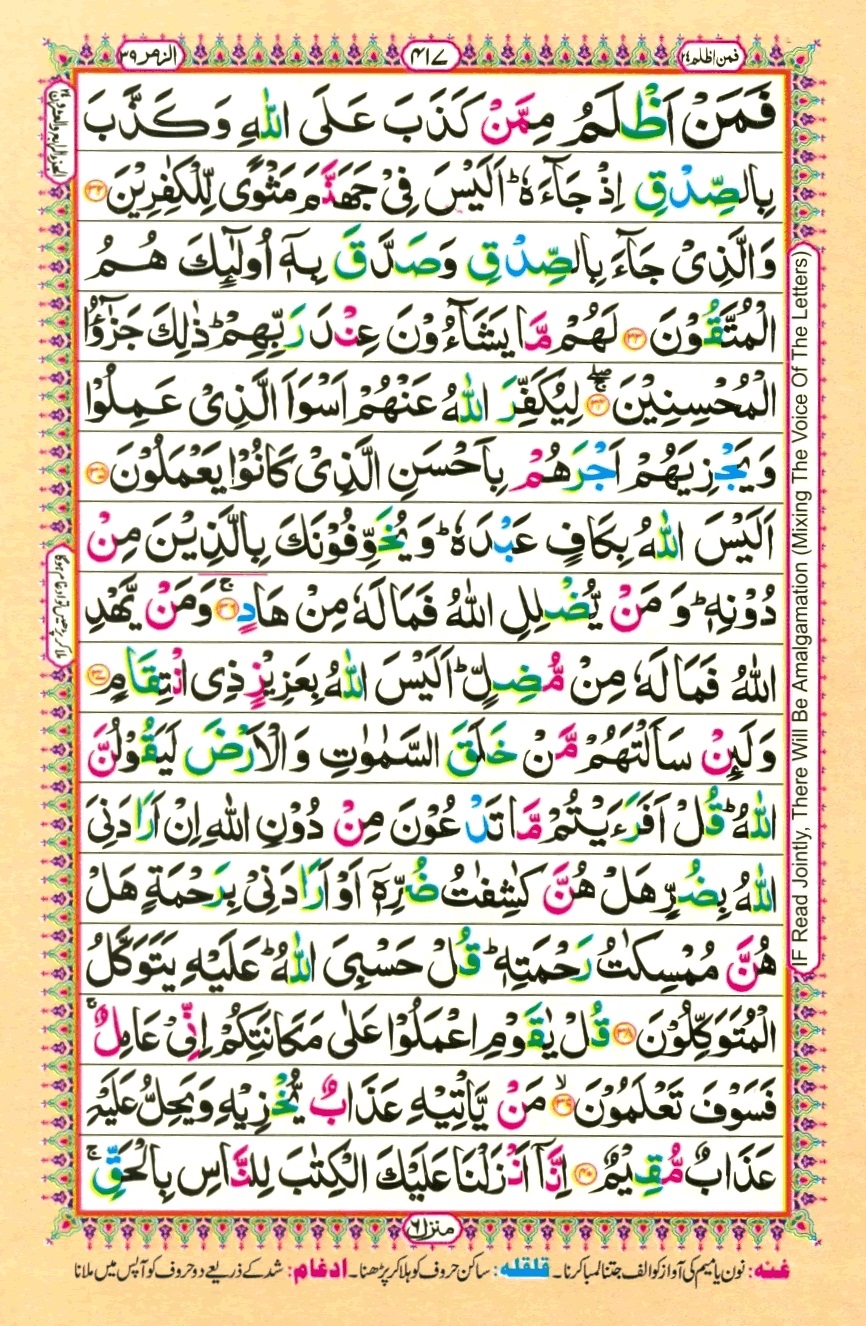 فمن اظلم ۲۴
۴۱۷
الزمر ۳۹
فَمَنْ اَظْلَمُ مِمَّنْ كَذَبَ عَلَى اللّٰهِ وَكَذَّبَ
بِالصِّدْقِ اِذْ جَآءَهٗ ؕ اَلَيْسَ فِىْ جَهَنَّمَ مَثْوًى لِّلْكٰفِرِيْنَ ۳۲
وَالَّذِىْ جَآءَ بِالصِّدْقِ وَصَدَّقَ بِهٖۤ اُولٰٓئِكَ هُمُ
الْمُتَّقُوْنَ ۳۳ لَهُمْ مَّا يَشَآءُوْنَ عِنْدَ رَبِّهِمْ ؕ ذٰلِكَ جَزٰٓؤُا
الْمُحْسِنِيْنَ ۳۴ لِيُكَفِّرَ اللّٰهُ عَنْهُمْ اَسْوَاَ الَّذِىْ عَمِلُوْا
وَيَجْزِيَهُمْ اَجْرَهُمْ بِاَحْسَنِ الَّذِىْ كَانُوْا يَعْمَلُوْنَ ۳۵
اَلَيْسَ اللّٰهُ بِكَافٍ عَبْدَهٗ ؕ وَيُخَوِّفُوْنَكَ بِالَّذِيْنَ مِنْ
دُوْنِهٖ ؕ وَمَنْ يُّضْلِلِ اللّٰهُ فَمَا لَهٗ مِنْ هَادٍ ۚ ۳۶ وَمَنْ يَّهْدِ
اللّٰهُ فَمَا لَهٗ مِنْ مُّضِلٍّ ؕ اَلَيْسَ اللّٰهُ بِعَزِيْزٍ ذِى انْتِقَامٍ ۳۷
وَلَئِنْ سَاَلْتَهُمْ مَّنْ خَلَقَ السَّمٰوٰتِ وَالْاَرْضَ لَيَقُوْلُنَّ
اللّٰهُ ؕ قُلْ اَفَرَءَيْتُمْ مَّا تَدْعُوْنَ مِنْ دُوْنِ اللّٰهِ اِنْ اَرَادَنِىَ
اللّٰهُ بِضُرٍّ هَلْ هُنَّ كٰشِفٰتُ ضُرِّهٖۤ اَوْ اَرَادَنِىْ بِرَحْمَةٍ هَلْ
هُنَّ مُمْسِكٰتُ رَحْمَتِهٖ ؕ قُلْ حَسْبِىَ اللّٰهُ ؕ عَلَيْهِ يَتَوَكَّلُ
الْمُتَوَكِّلُوْنَ ۳۸ قُلْ يٰقَوْمِ اعْمَلُوْا عَلٰى مَكَانَتِكُمْ اِنِّىْ عَامِلٌ ۚ
فَسَوْفَ تَعْلَمُوْنَ ۙ ۳۹ مَنْ يَّاْتِيْهِ عَذَابٌ يُّخْزِيْهِ وَيَحِلُّ عَلَيْهِ
عَذَابٌ مُّقِيْمٌ ۴۰ اِنَّاۤ اَنْزَلْنَا عَلَيْكَ الْكِتٰبَ لِلنَّاسِ بِالْحَقِّ ۚ
IF Read Jointly, There Will Be Amalgamation (Mixing The Voice Of The Letters)
ملا کر پڑھیں تو ادغام ہوگا
منزل ۶
غنه: نون یا میم کی آواز کو الف جتنا لمبا کرنا۔ قلقله: ساکن حروف کو ہلا کر پڑھنا۔ ادغام: شد کے ذریعے دو حروف کو آپس میں ملانا